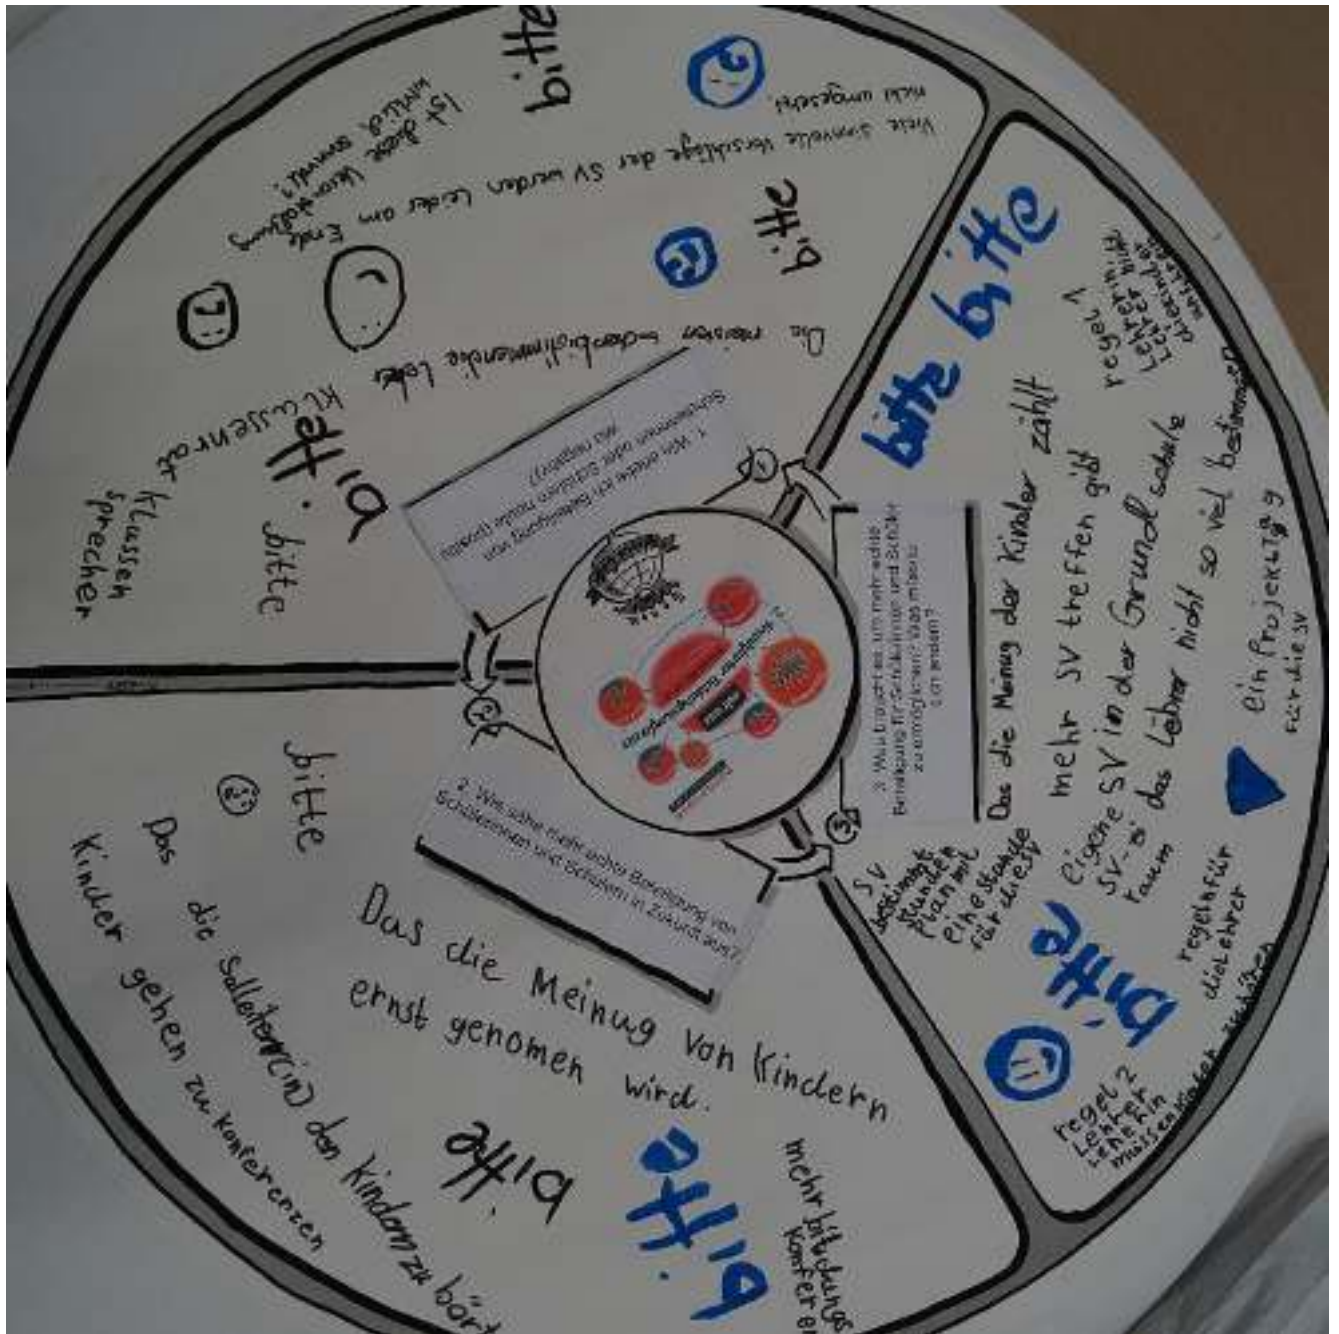 1. Wie erlebe ich Beteiligung von
Schülerinnen oder Schülern heute (positiv
wie negativ)?
bitte
nicht umgesetzt.
Viele sinnvolle Vorschläge der SV werden leider am Ende
Ist diese Veranstaltung
wirklich sinnvoll?
bitte
Die meisten
Klassenrat
bitte
Klassen
sprecher
bitte
2. Wie sähe mehr echte Beteiligung von
Schülerinnen und Schülern in Zukunft aus?
bitte
Das die Meinug von Kindern
ernst genomen wird.
Das die den Kindern zu hört
Kinder gehen zu Konferenzen
bitte
bitte
mehr bildungs
3. Was braucht es, um mehr echte
Beteiligung für Schülerinnen und Schüler
zu ermöglichen? Was müsste
sich ändern?
bitte bitte
Das die Meinug der Kinder zählt
mehr SV treffen gibt
eigene SV in der Grundschule
SV-
raum
das Lehrer nicht so viel bestimmen
regel 1
Lehrerin
Lehrer
ein Projekttag
für die SV
SV
bestimmt
stunden
plan mit
eine stunde
für die SV
bitte
regeln für
die Lehrer
regel 2
Lehrer
müssen Kindern zuhören